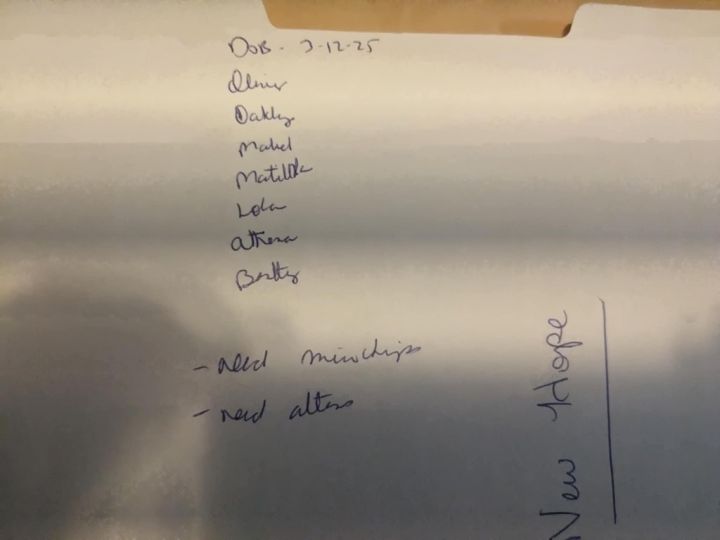 DOB - 3-12-25
Oliver
Oakley
Mabel
Matilda
Lola
Athena
Bentley
- need microchips
- need alters
New Hope